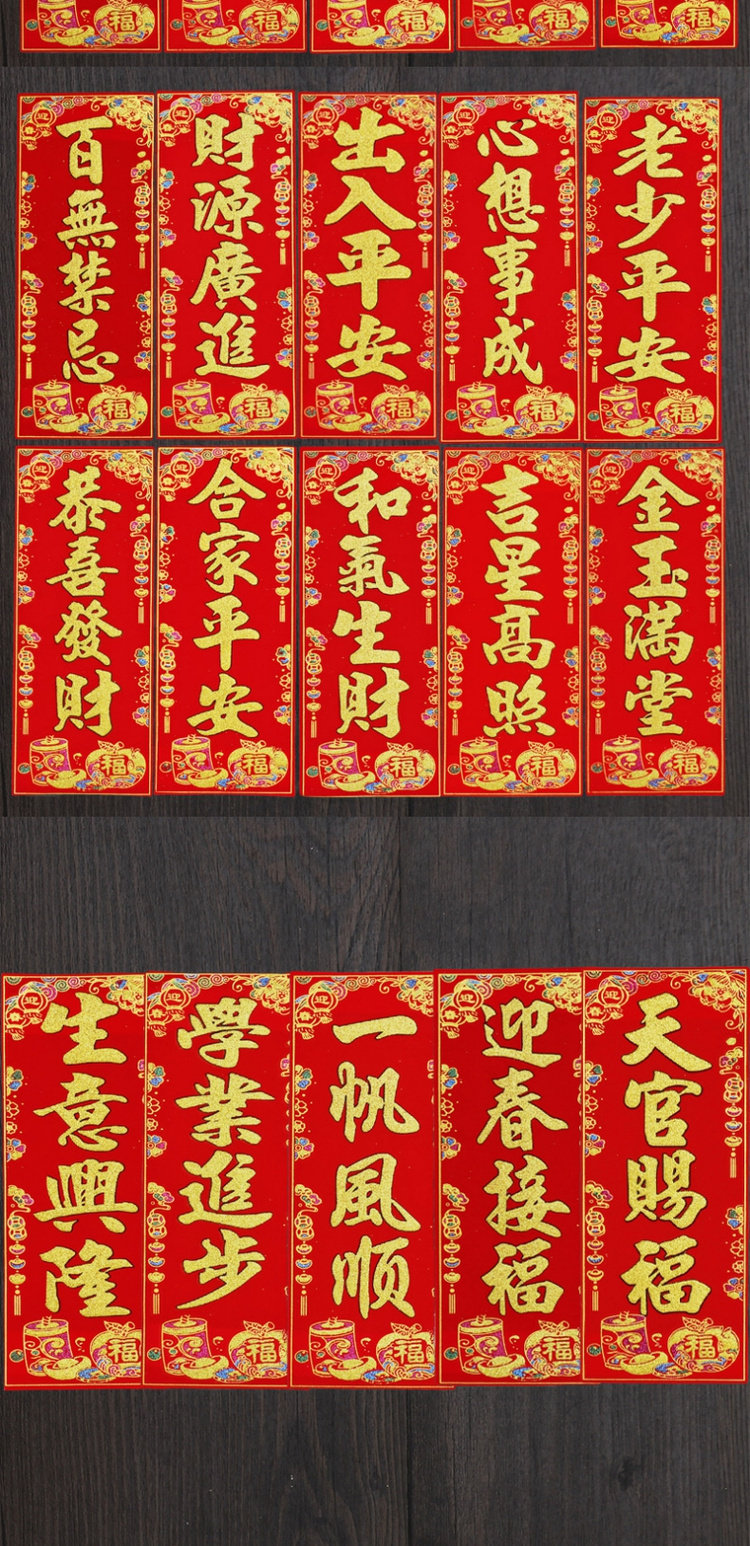 福
福
福
福
福
迎春
百無禁忌
福
迎春
財源廣進
福
迎春
出入平安
福
迎春
心想事成
福
迎春
老少平安
福
迎春
恭喜發財
福
迎春
合家平安
福
迎春
和氣生財
福
迎春
吉星高照
福
迎春
金玉滿堂
福
迎春
生意興隆
福
迎春
學業進步
福
迎春
一帆風順
福
迎春
迎春接福
福
迎春
天官賜福
福